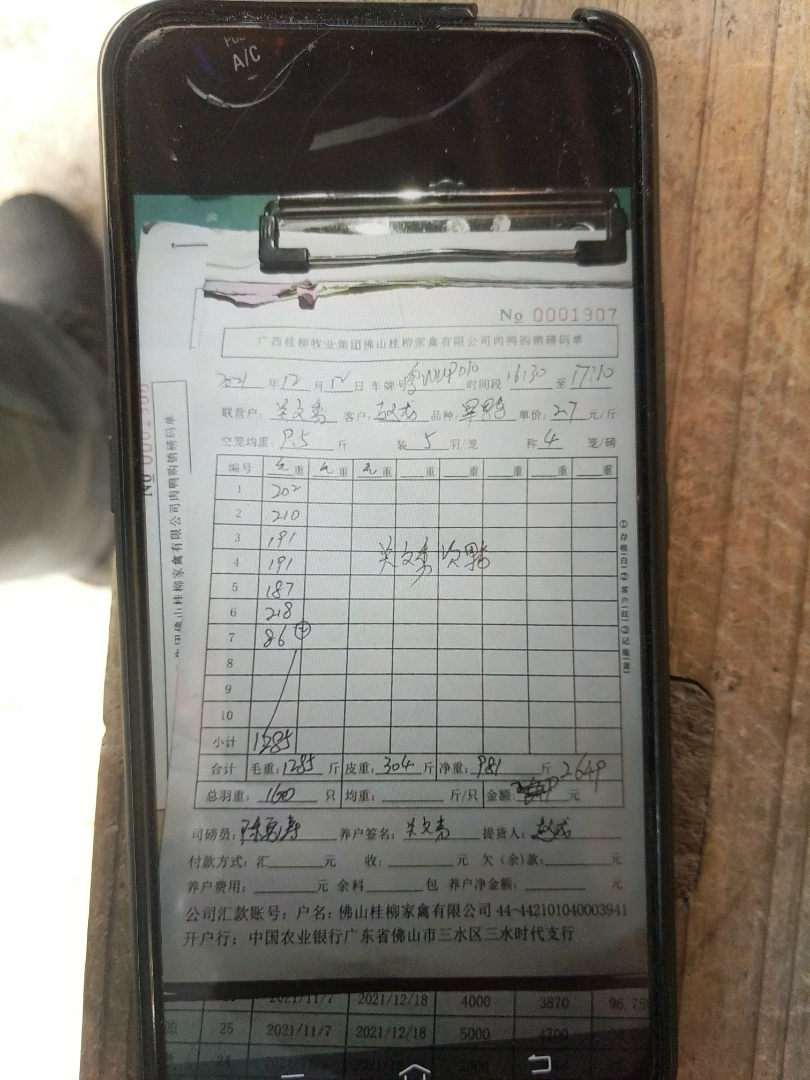 A/C
No 0001907
广西桂柳牧业集团佛山桂柳家禽有限公司肉鸭购销磅码单
2021年12月12日 车牌号 时间段16:30至17:10
联营户: 客户: 品种: 单价:2.7元/斤
空笼均重:9.5斤 装5羽/笼 称4笼/磅
编号 毛重 毛重 毛重 重 重 重 重
1 202
2 210
3 191
4 191
5 187
6 218
7 86
8
9
10
小计 1285
合计 毛重:1285斤 皮重:304斤 净重:981斤 2649
总羽重:160只 均重: 斤/只 金额: 元
司磅员: 养户签名: 提货人:
付款方式:汇 元 收: 元 欠(余)款: 元
养户费用: 元 余料 包 养户净金额: 元
公司汇款账号:户名:佛山桂柳家禽有限公司 44-442101040003941
开户行:中国农业银行广东省佛山市三水区三水时代支行
①存根(白)②客户(红)③记账(黄)
山桂柳家禽有限公司肉鸭购销磅码单
2021/11/7 2021/12/18 4000 3870
25 2021/11/7 2021/12/18 5000 4700